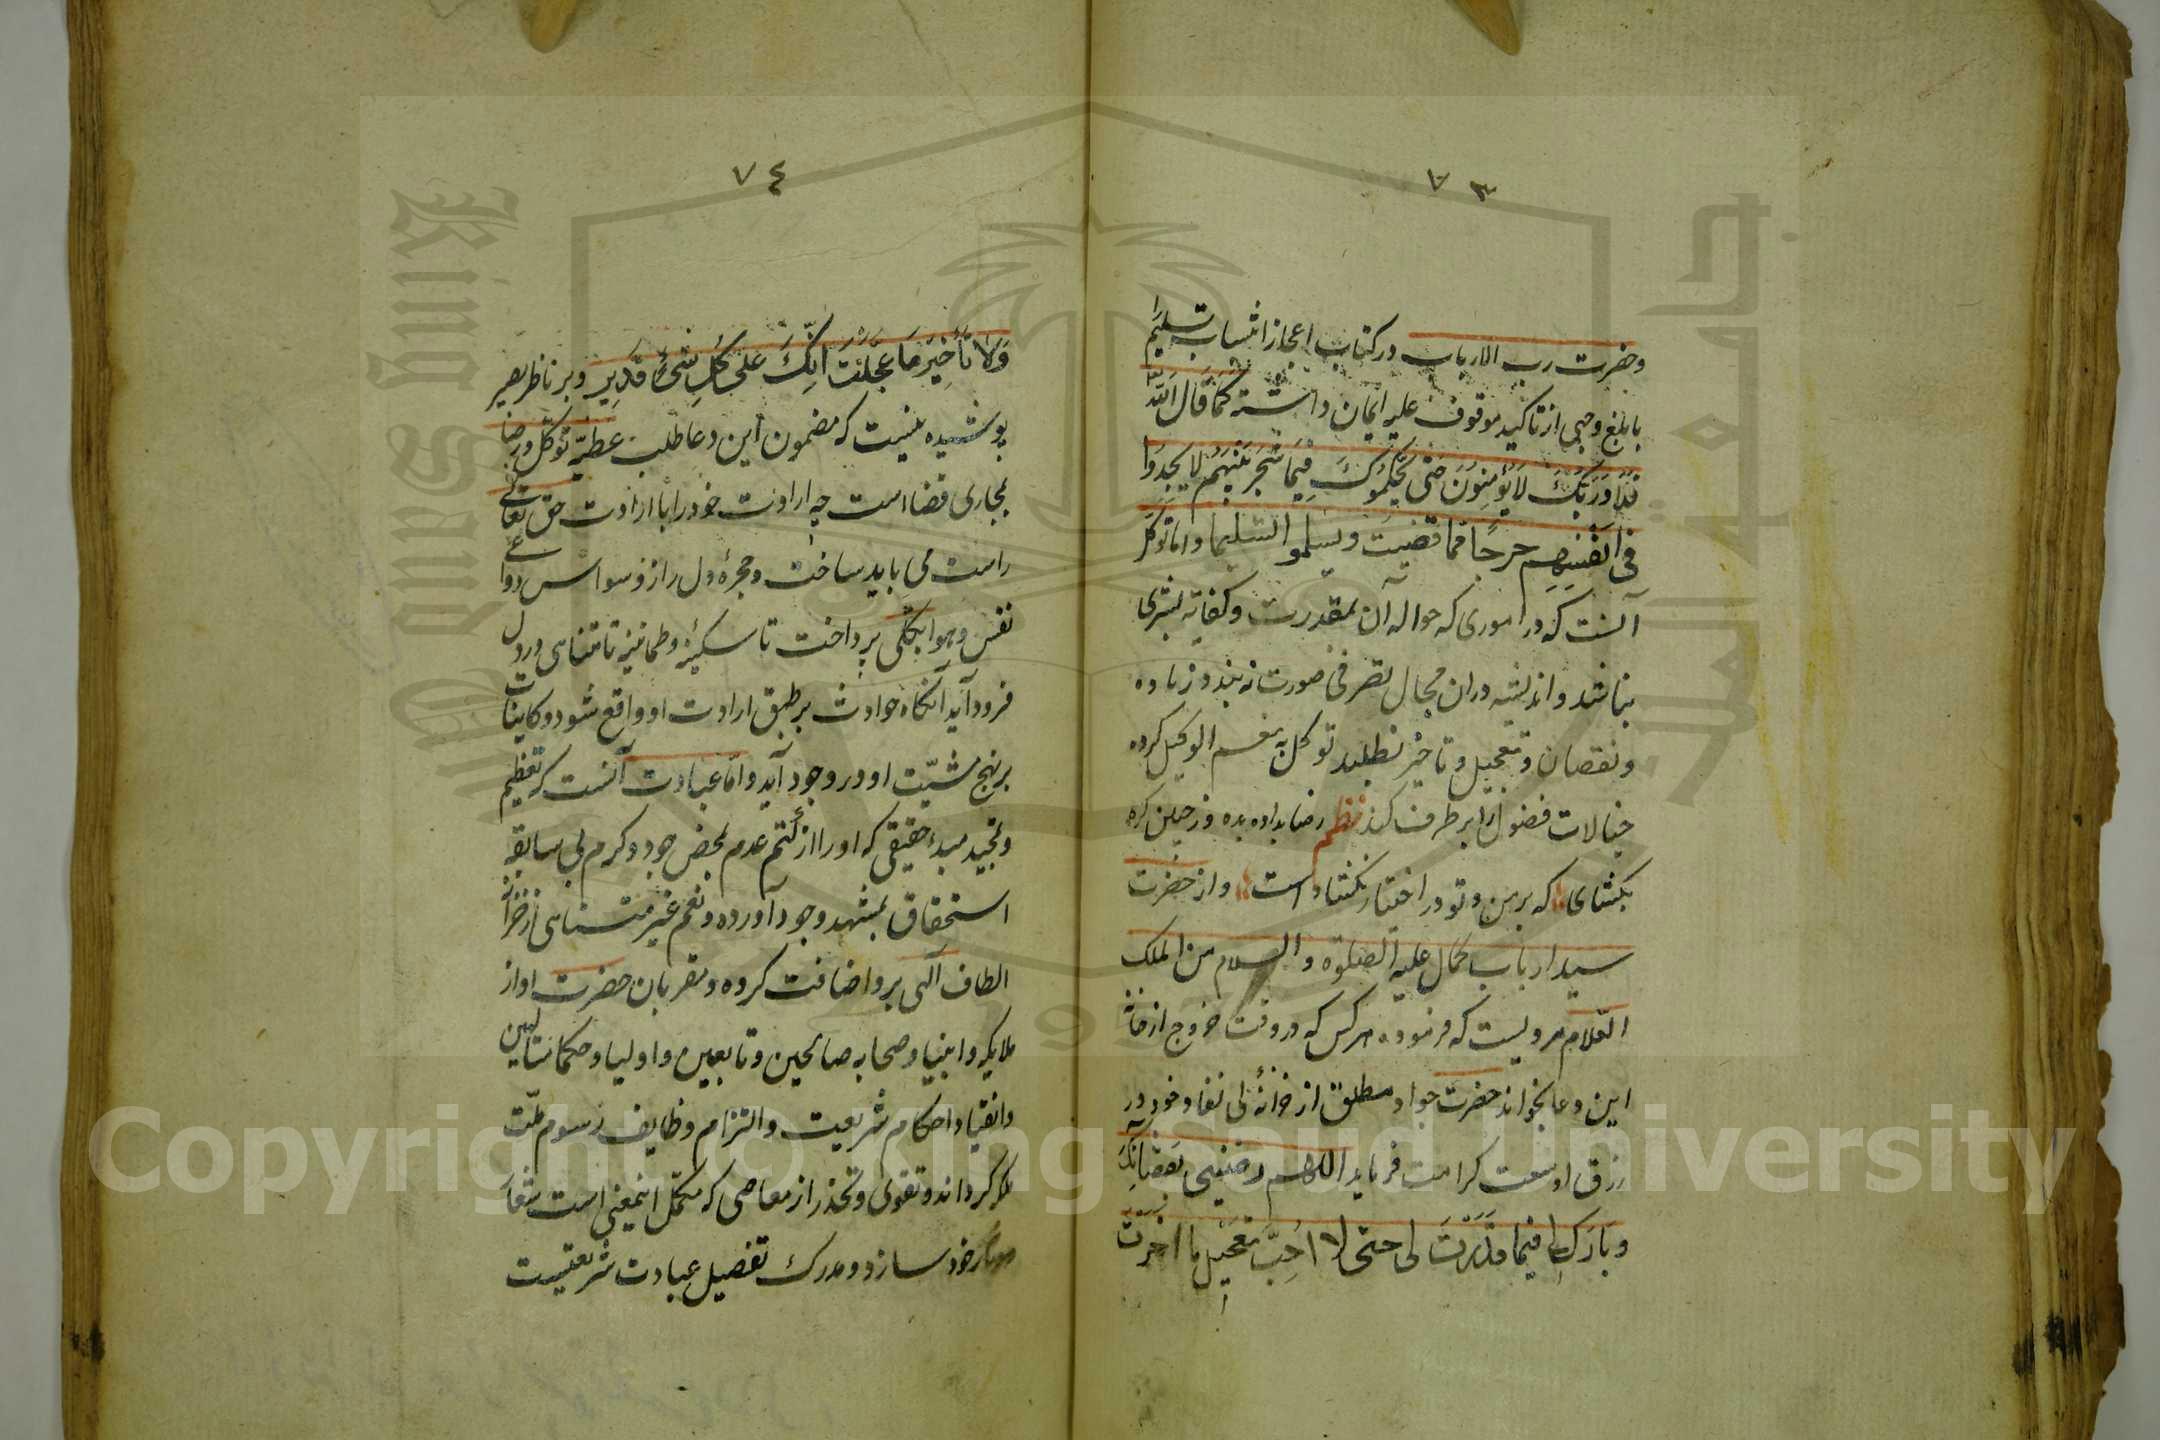 ٧٣
وحضرت رب الارباب در کتاب اعجاز انتساب تسلیم را
بابلغ وجهی از تاکید موقوف علیه ایمان داشته کَمَا قَالَ اللّٰه
فَلَا وَرَبِّكَ لَا يُؤْمِنُونَ حَتّٰى يُحَكِّمُوكَ فِيمَا شَجَرَ بَيْنَهُمْ لا يَجِدُوا
فی اَنْفُسِهِم حرجًا مما قضیتَ ویسلموا التسلیما واما توکل
آنست که در اموری که حواله آن بمقدرت وکفایة بشری
نباشد واندیشه دران مجال تصرفی صورت نه بندد زیاده
ونقصان وتعجیل وتاخیر نطلبد توکل به نعم الوکیل کرده
خیالات فضول را بر طرف کند نظم رضا بداده بده وز جبین گره
بکشای که بر من وتو در اختیار نکشاد است واز حضرت
سید ارباب کمال علیه الصلوة والسلام من الملک
العلام مرویست که فرموده هر کس که در وقت خروج از خانه
این دعا بخواند حضرت جواد مطلق از خزانهٔ بی نفاد خود در
رزق او سعت کرامت فرماید اللهم رضینی بقضائِكَ
وبَارِك لی فیما قدّرتَ لی حتی لا اُحِبَّ تعجیل ما اخرت
٧٤
وَلَا تَأخِيرَ مَا عَجَّلْتَ اِنَّكَ عَلٰى كُلِّ شَیءٍ قَدِير وبر ناظر بصیر
پوشیده نیست که مضمون این دعا طلب عطیّه توکل ورضا
بمجاری قضا است چه ارادت خود را با ارادت حق تعالی
راست می باید ساخت وحجرهٔ دل را از وسواس دواعی
نفس وهوا بکلی پرداخت تا سکینه وطمانینه نامتناهی در دل
فرود آید آنکاه حوادث بر طبق ارادت او واقع شود وکاینات
بر نهج مشیّت او در وجود آید واما عبادت آنست که تعظیم
وتمجید مبدء حقیقی که او را از کتم عدم بمحض جود وکرم بی سابقه
استحقاق بمشهد وجود آورده ونعم غیر متناهی از خزانه
الطاف الهی بر واضافت کرده ومقربان حضرت او از
ملایکه وانبیا وصحابه صالحین وتابعین واولیا وحکما متالهین
وانقیاد احکام شریعت والتزام وظایف رسوم ملّت
ملکه کرداند وتقوی وتحذر از معاصی که مکمل اینمعنی است شعار
خود سازد ومدرک تفصیل عبادت شریعتست
Copyright © King Saud University
King Saud University